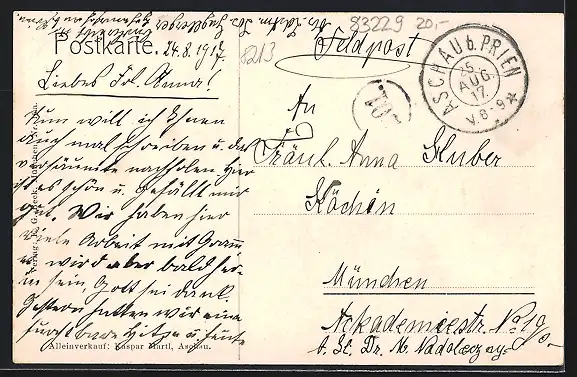 83229 20,-
8213
Postkarte.
24.8.1917.
Feldpost
ASCHAU b. PRIEN
25. AUG. 17
V. 8-9
Liebes Frl. Anna!
Nun will ich Ihnen
auch mal schreiben u. das
versäumte nachholen. Hier
ist es schön u. gefällt mir
gut. Wir haben hier
viele Arbeit mit
es wird aber bald
sein, Gott sei dank.
Gestern hatten wir eine
furchtbare Hitze u. heute
An
Fräul. Anna Huber
Köchin
München
Akademiestr. No 19
b. Dr. Nadoleczny
Alleinverkauf: Kaspar Martl, Aschau.